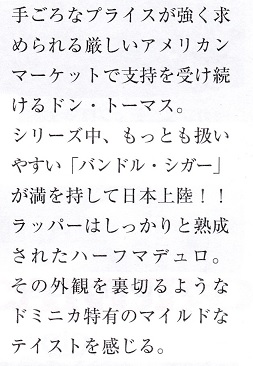 手ごろなプライスが強く求
められる厳しいアメリカン
マーケットで支持を受け続
けるドン・トーマス。
シリーズ中、もっとも扱い
やすい「バンドル・シガー」
が満を持して日本上陸！！
ラッパーはしっかりと熟成
されたハーフマデュロ。
その外観を裏切るような
ドミニカ特有のマイルドな
テイストを感じる。